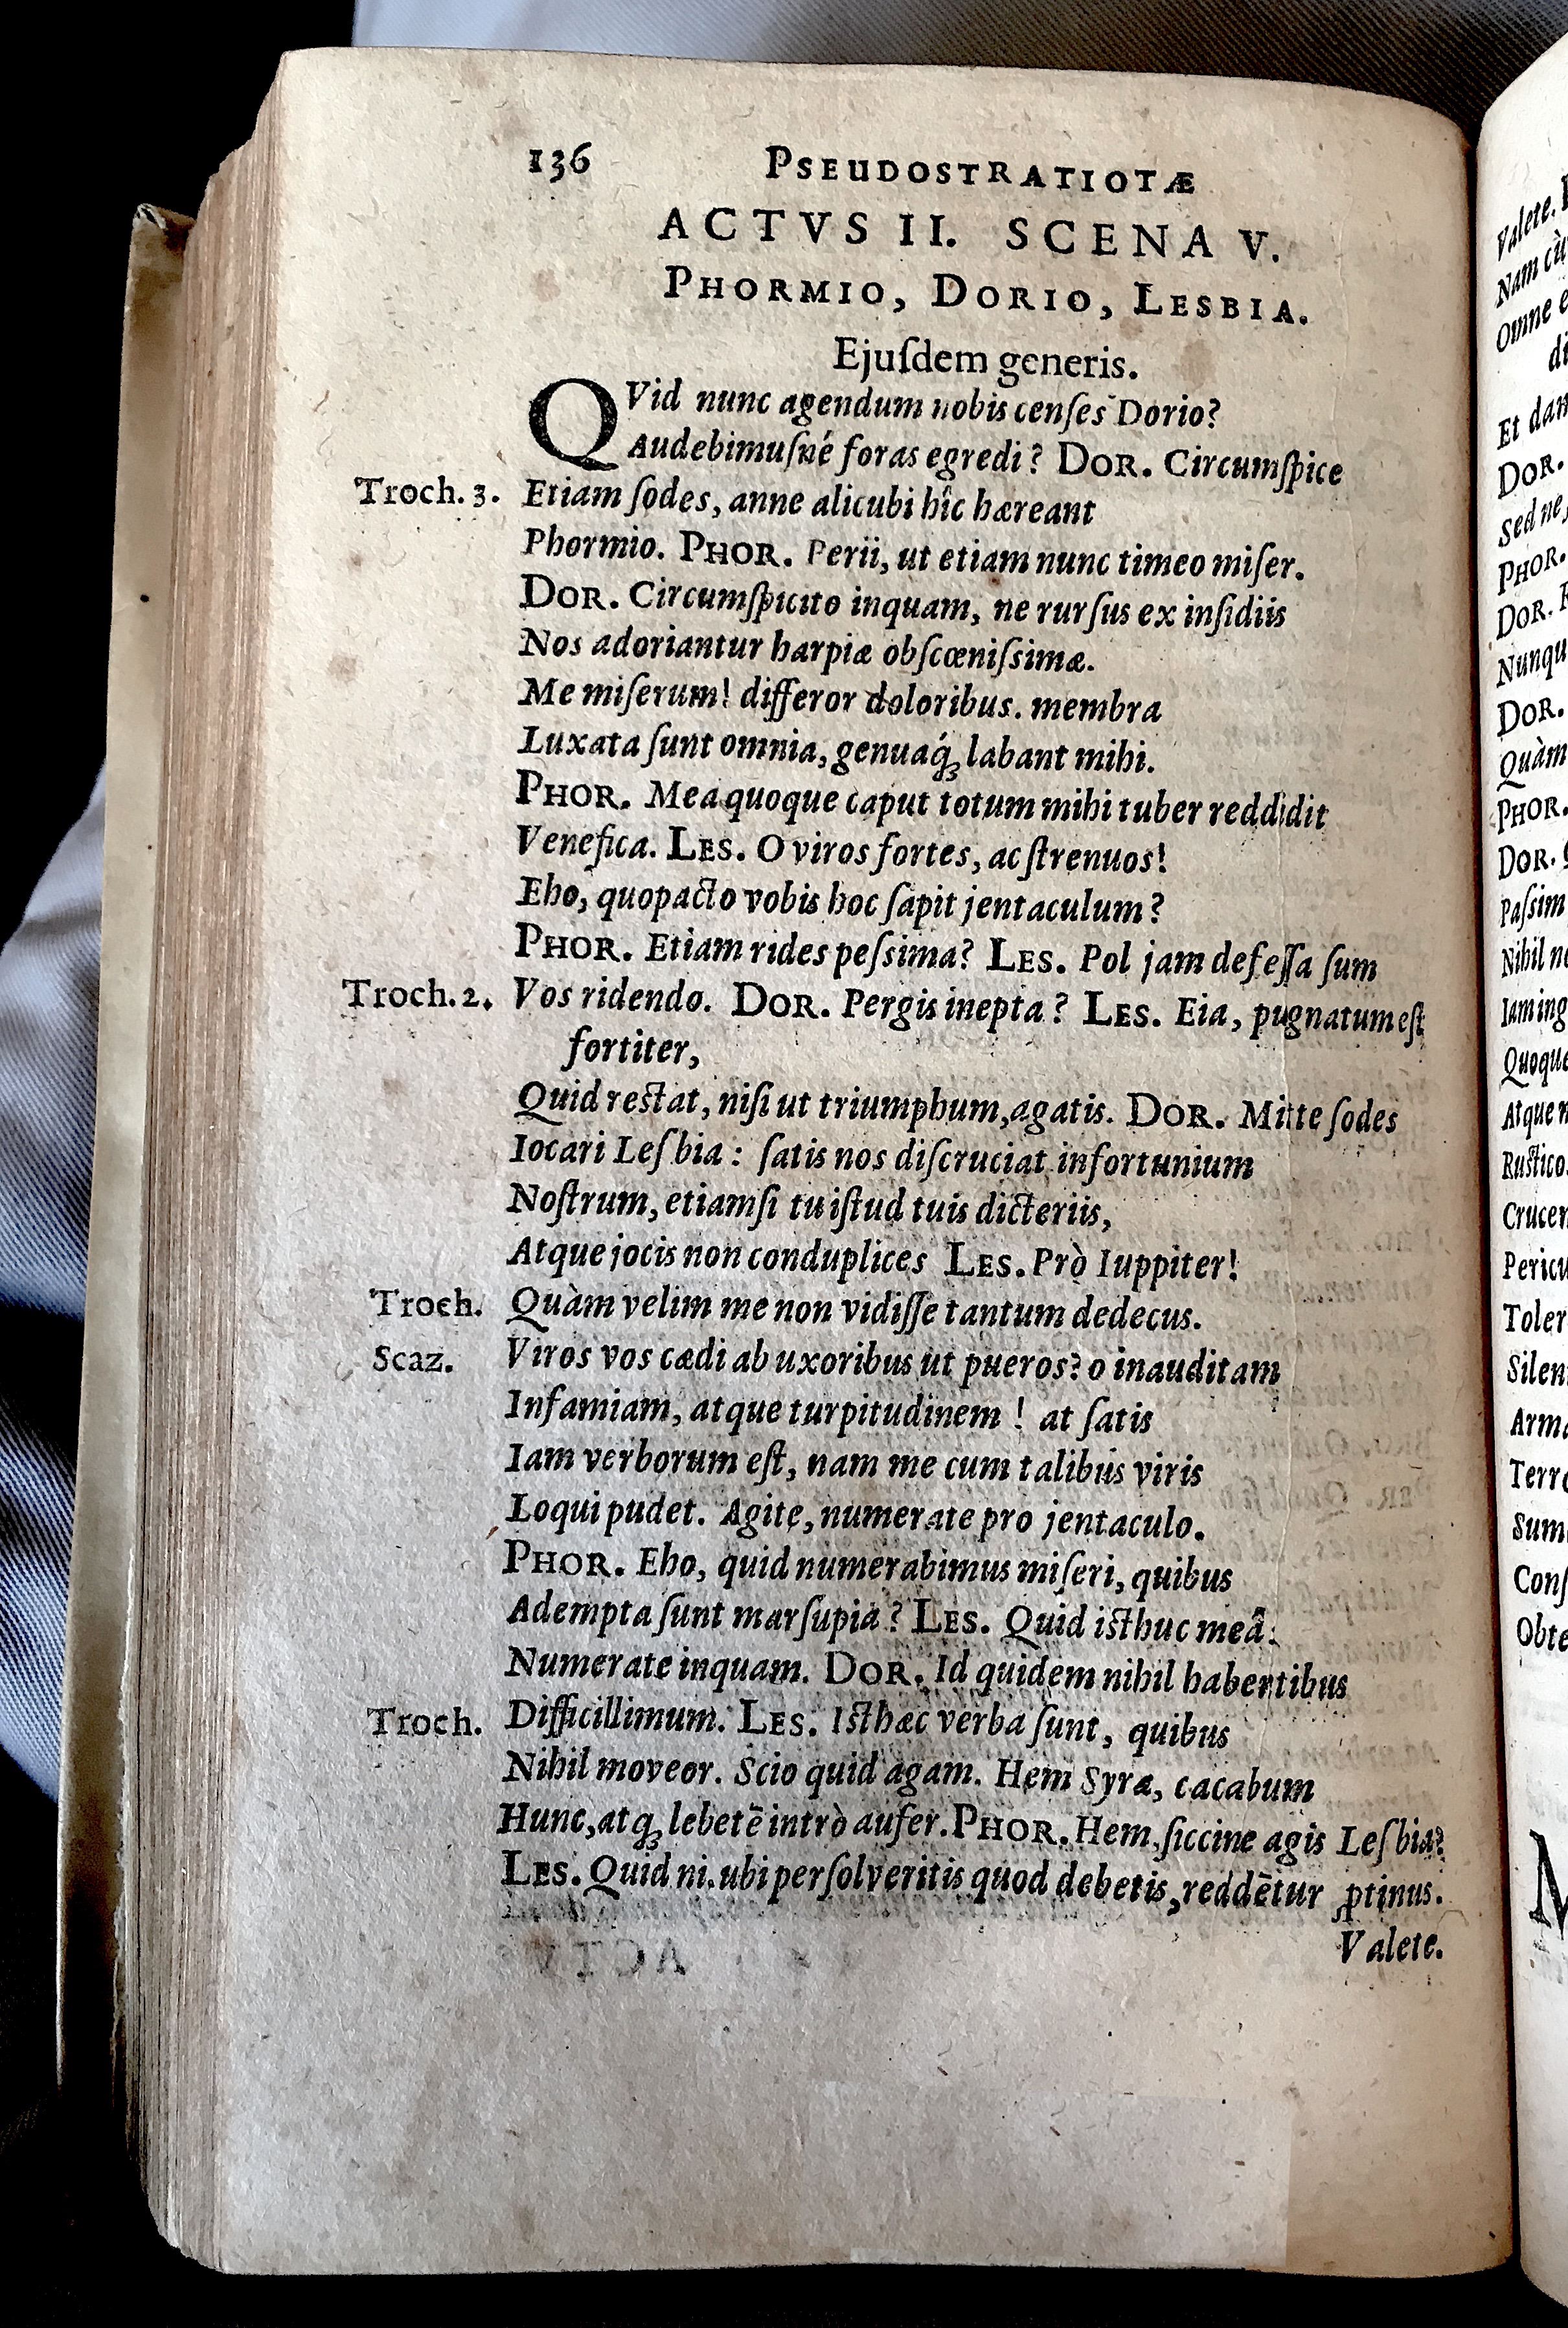 136 PSEUDOSTRATIOTÆ
ACTVS II. SCENA V.
PHORMIO, DORIO, LESBIA.
Ejuſdem generis.
QVid nunc agendum nobis cenſes Dorio?
Audebimuſné foras egredi? DOR. Circumſpice
Troch. 3. Etiam ſodes, anne alicubi hîc hæreant
Phormio. PHOR. Perii, ut etiam nunc timeo miſer.
DOR. Circumſpicito inquam, ne rurſus ex inſidiis
Nos adoriantur harpiæ obſcœniſsimæ.
Me miſerum! differor doloribus. membra
Luxata ſunt omnia, genuaq́ꝫ labant mihi.
PHOR. Mea quoque caput totum mihi tuber reddidit
Venefica. LES. O viros fortes, ac ſtrenuos!
Eho, quopacto vobis hoc ſapit jentaculum?
PHOR. Etiam rides peſsima? LES. Pol jam defeſſa ſum
Troch. 2. Vos ridendo. DOR. Pergis inepta? LES. Eia, pugnatum eſt
fortiter,
Quid restat, niſi ut triumphum, agatis. DOR. Mitte ſodes
Iocari Leſbia: ſatis nos diſcruciat infortunium
Noſtrum, etiamſi tu iſtud tuis dicteriis,
Atque jocis non conduplices LES. Prò Iuppiter!
Troch. Quàm velim me non vidiſſe tantum dedecus.
Scaz. Viros vos cædi ab uxoribus ut pueros? o inauditam
Infamiam, atque turpitudinem! at ſatis
Iam verborum eſt, nam me cum talibus viris
Loqui pudet. Agite, numerate pro jentaculo.
PHOR. Eho, quid numerabimus miſeri, quibus
Adempta ſunt marſupia? LES. Quid isthuc meâ:
Numerate inquam. DOR. Id quidem nihil habentibus
Troch. Difficillimum. LES. Isthæc verba ſunt, quibus
Nihil moveor. Scio quid agam. Hem Syra, cacabum
Hunc, atqꝫ lebetē intrò aufer. PHOR. Hem, ſiccine agis Leſbia?
LES. Quid ni. ubi perſolveritis quod debetis, reddētur ꝓtinus.
Valete.